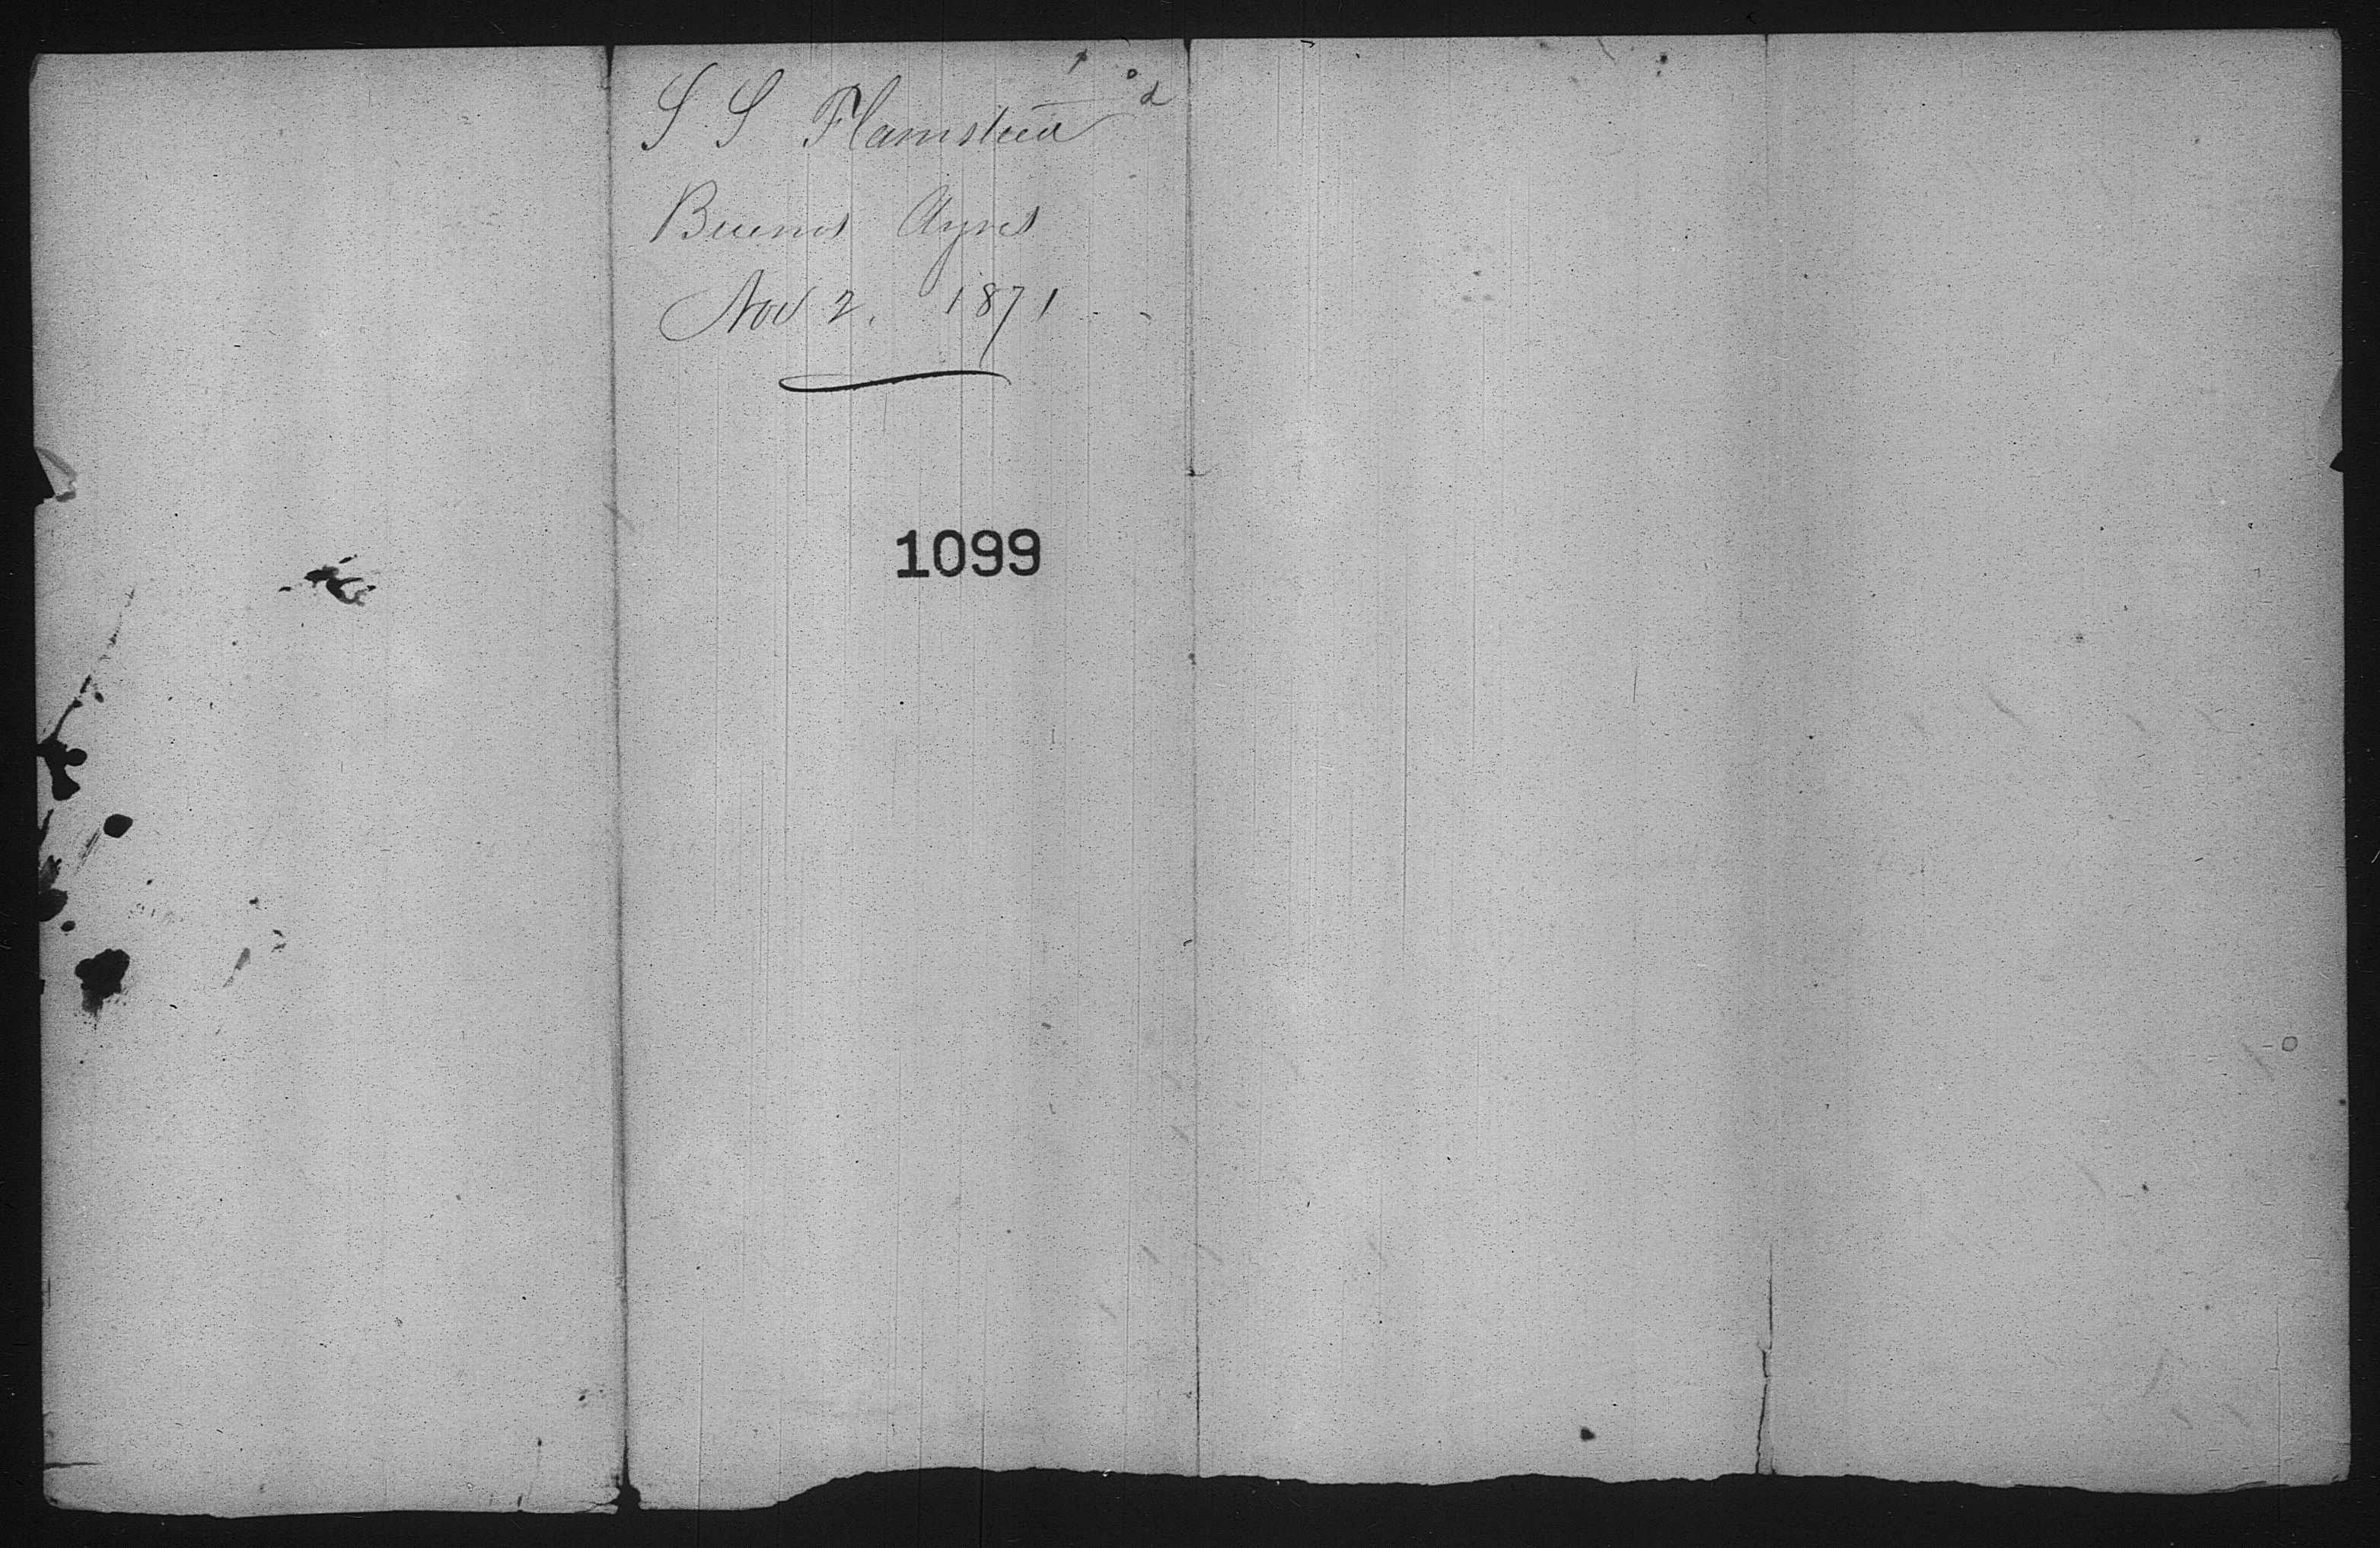 S S Flamsteed
Buenos Ayres
Nov 2. 1871
1099